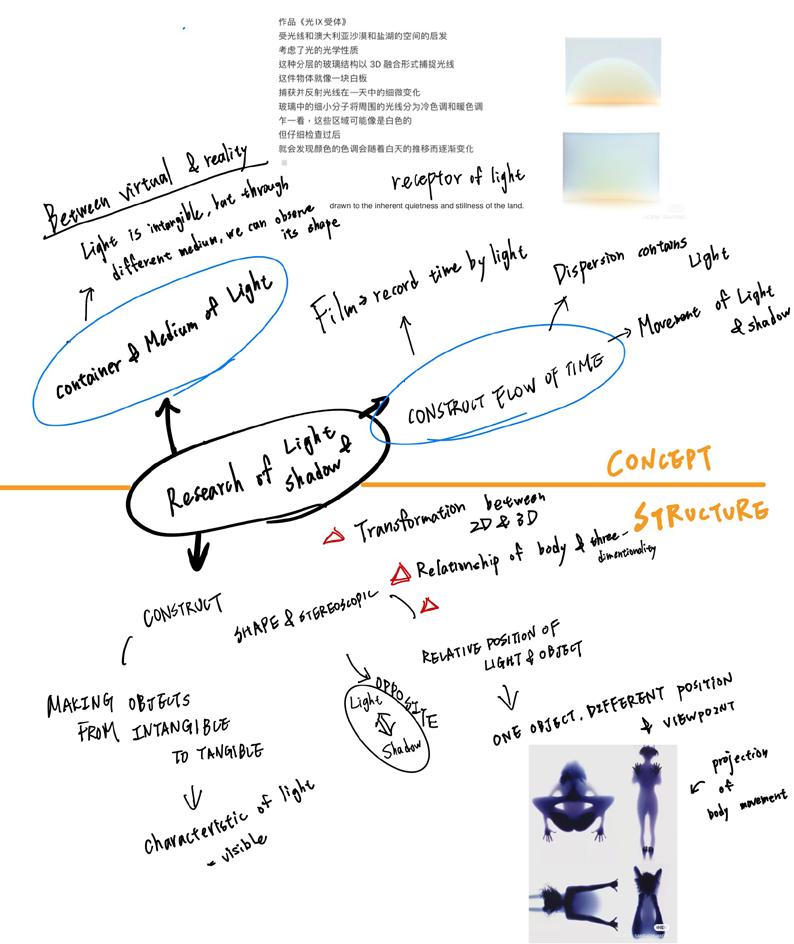 作品《光IX受体》
受光线和澳大利亚沙漠和盐湖的空间的启发
考虑了光的光学性质
这种分层的玻璃结构以 3D 融合形式捕捉光线
这件物体就像一块白板
捕获并反射光线在一天中的细微变化
玻璃中的细小分子将周围的光线分为冷色调和暖色调
乍一看，这些区域可能像是白色的
但仔细检查过后
就会发现颜色的色调会随着白天的推移而逐渐变化
receptor of light
drawn to the inherent quietness and stillness of the land.
Between virtual & reality
Light is intangible, but through
different medium, we can observe
its shape
container & Medium of Light
Film → record time by light
Dispersion contains
Light
Movement of Light
& shadow
CONSTRUCT FLOW OF TIME
Research of Light &
shadow
CONCEPT
STRUCTURE
Transformation between
2D & 3D
Relationship of body & three-
dimentionality
CONSTRUCT
SHAPE & STEREOSCOPIC
RELATIVE POSITION OF
LIGHT & OBJECT
OPPOSITE
Light
Shadow
MAKING OBJECTS
FROM INTANGIBLE
TO TANGIBLE
ONE OBJECT, DIFFERENT POSITION
& VIEWPOINT
projection
of
body movement
characteristic of light
- visible